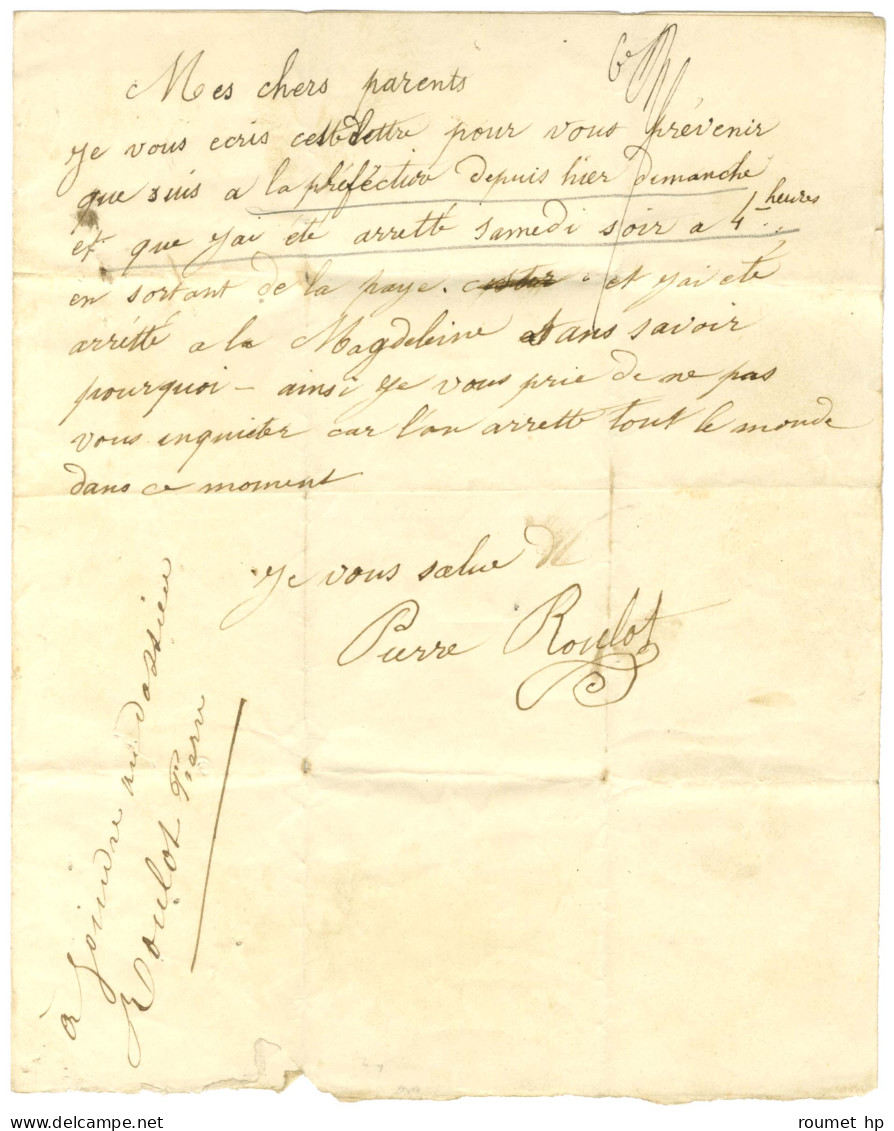 Mes chers parents
je vous ecris cette lettre pour vous prévenir
que suis a la préfécture depuis hier demanche
et que j'ai eté arretté samedi soir a 4 heures
en sortant de la paye. et j'ai eté
arrétté a la Magdeleine sans savoir
pourquoi - ainsi je vous prie de ne pas
vous inquieter car l'on arrette tout le monde
dans ce moment
je vous salue
Pierre Roulot
à Joindre au dossier
Roulot Pierre
roumet hp